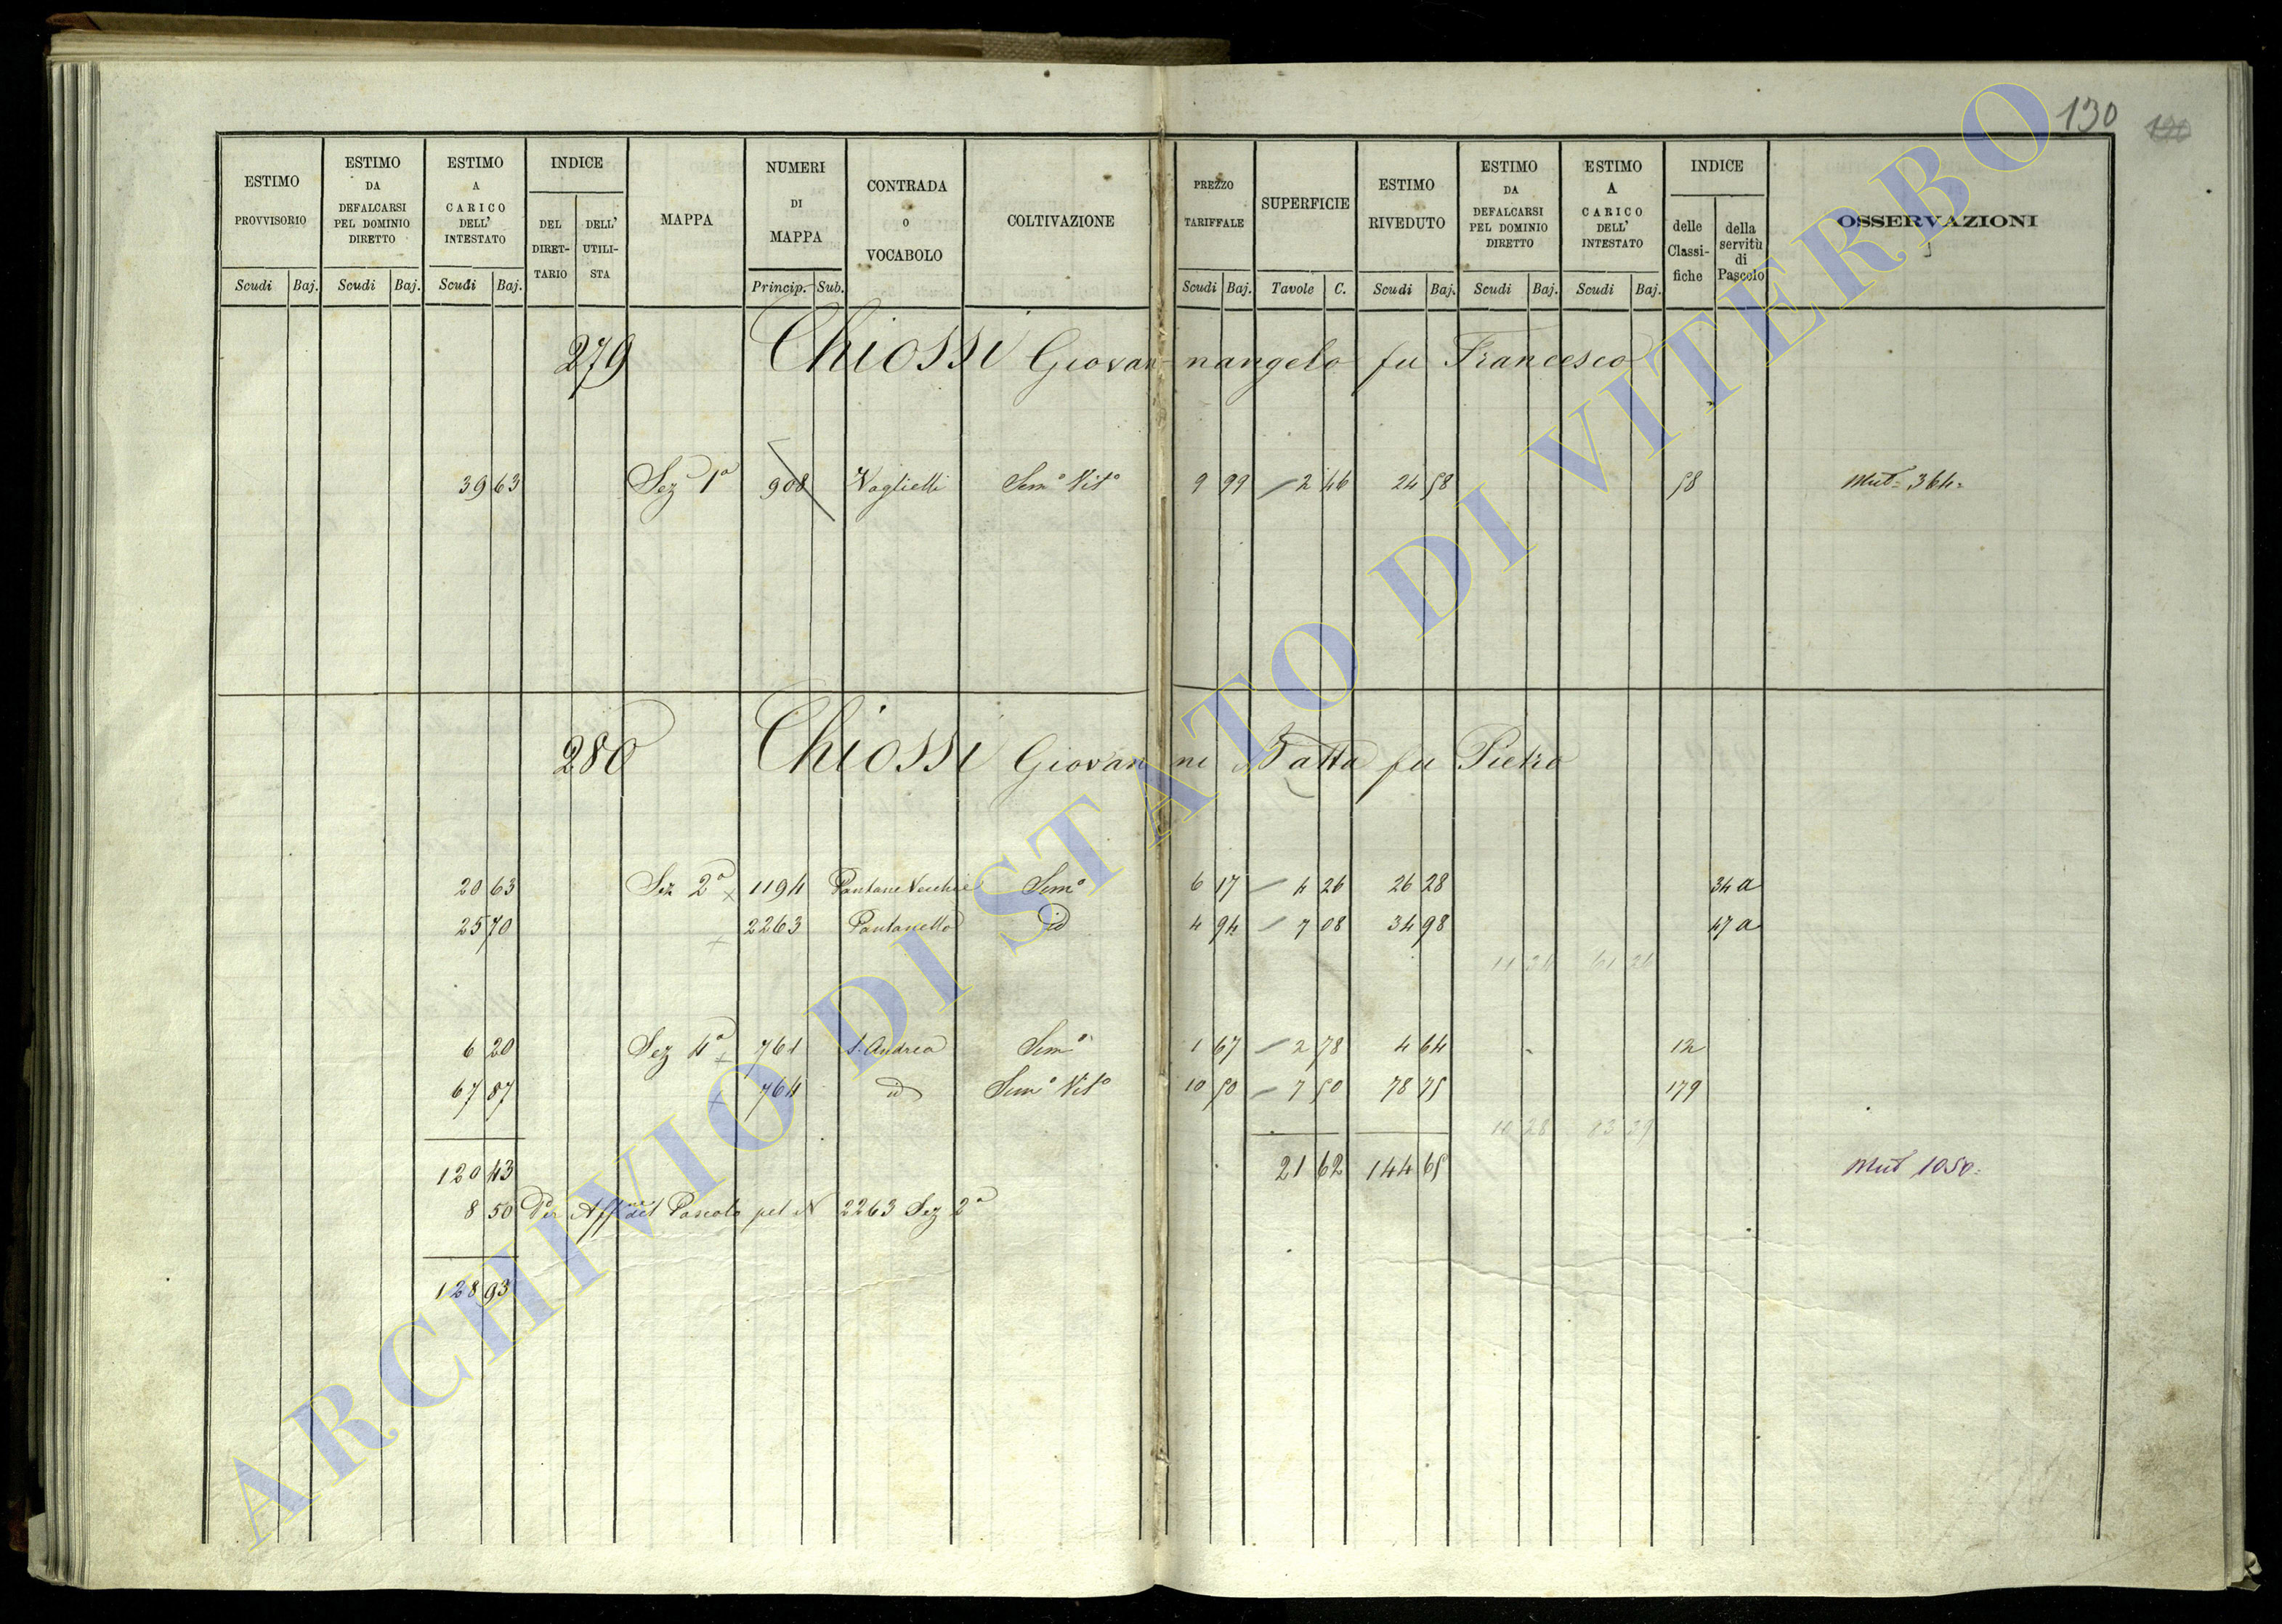 130
ESTIMO PROVVISORIO Scudi Baj.
ESTIMO DA DEFALCARSI PEL DOMINIO DIRETTO Scudi Baj.
ESTIMO A CARICO DELL' INTESTATO Scudi Baj.
INDICE DEL DIRET-TARIO DELL' UTILI-STA
MAPPA
NUMERI DI MAPPA Princip. Sub.
CONTRADA O VOCABOLO
COLTIVAZIONE
PREZZO TARIFFALE Scudi Baj.
SUPERFICIE Tavole C.
ESTIMO RIVEDUTO Scudi Baj.
ESTIMO DA DEFALCARSI PEL DOMINIO DIRETTO Scudi Baj.
ESTIMO A CARICO DELL' INTESTATO Scudi Baj.
INDICE delle Classi-fiche della servitù di Pascolo
OSSERVAZIONI
279 Chiossi Giovan-nangelo fu Francesco
39 63 Sez 1a 908 Voglielli Sem° Vit° 9 99 2 46 24 58 58 Mut= 364=
280 Chiossi Giovanni Batta fu Pietro
20 63 Sez 2a 1194 Pantane Vecchie Sem° 6 17 4 26 26 28 34 a
25 70 2263 Pantanello id 4 94 7 08 34 98 47 a
61 26
6 20 Sez 4a 761 S. Andrea Sem° 1 67 2 78 4 64 12
67 87 764 id Sem° Vit° 10 50 7 50 78 75 179
83 39
120 43 21 62 144 65 Mut 1050=
8 50 Per Aff del Pascolo pel N 2263 Sez 2a
128 93
ARCHIVIO DI STATO DI VITERBO